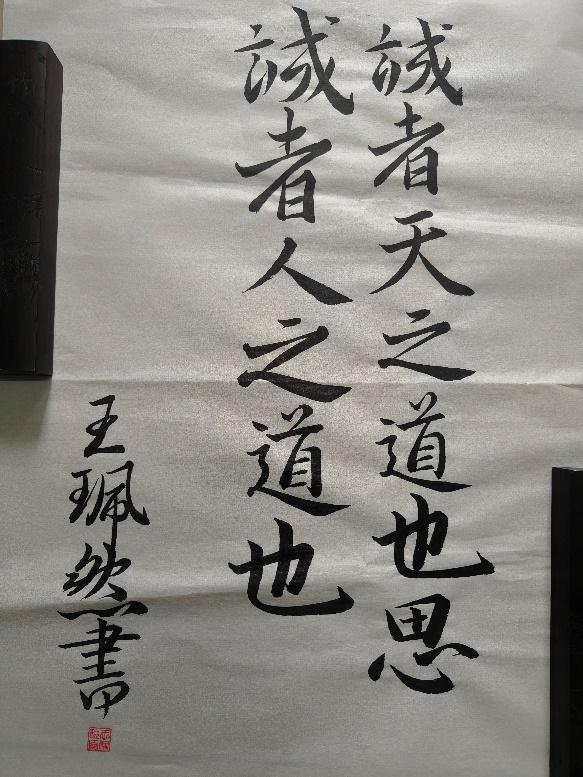 誠者天之道也思
誠者人之道也
王珮然書